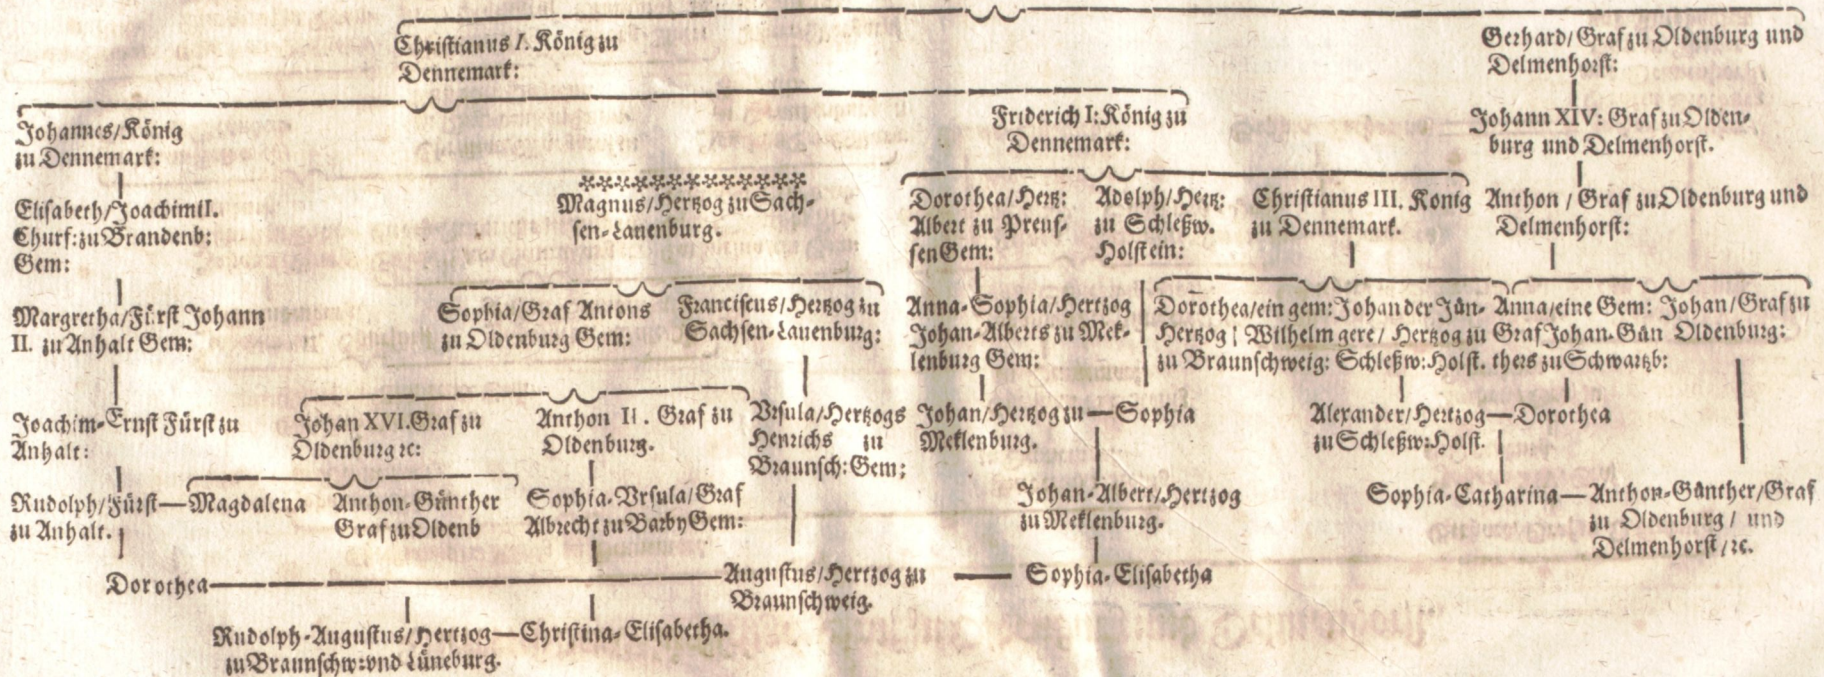 Christianus I. König zu
Dennemark:
Gerhard/Graf zu Oldenburg und
Delmenhorst:
Johannes/König
zu Dennemark:
Friderich I: König zu
Dennemark:
Johann XIV: Graf zu Olden-
burg und Delmenhorst.
Elisabeth/Joachimi I.
Churf: zu Brandenb:
Gem:
Magnus/Hertzog zu Sach-
sen-Lauenburg.
Dorothea/Hertz:
Albert zu Preus-
sen Gem:
Adolph/Hertz:
zu Schleßw.
Holstein:
Christianus III. König
zu Dennemark.
Anthon / Graf zu Oldenburg und
Delmenhorst:
Margretha/Fürst Johann
II. zu Anhalt Gem:
Sophia/Graf Antons
zu Oldenburg Gem:
Franciscus/Hertzog zu
Sachsen-Lauenburg:
Anna-Sophia/Hertzog
Johan-Alberts zu Mek-
lenburg Gem:
Dorothea/ein gem:
Hertzog Wilhelm
zu Braunschweig:
Johan der Jün-
gere/ Hertzog zu
Schleßw: Holst.
Anna/eine Gem:
Graf Johan-Gün
thers zu Schwartzb:
Johan/Graf zu
Oldenburg:
Joachim-Ernst Fürst zu
Anhalt:
Johan XVI. Graf zu
Oldenburg ꝛc:
Anthon II. Graf zu
Oldenburg.
Vrsula/Hertzogs
Henrichs zu
Braunsch: Gem:
Johan/Hertzog zu
Meklenburg.
Sophia
Alexander/Hertzog
zu Schleßw: Holst.
Dorothea
Rudolph/Fürst
zu Anhalt.
Magdalena
Anthon-Günther
Graf zu Oldenb
Sophia-Vrsula/Graf
Albrecht zu Barby Gem:
Johan-Albert/Hertzog
zu Meklenburg.
Sophia-Catharina
Anthon-Günther/Graf
zu Oldenburg / und
Delmenhorst/ꝛc.
Dorothea
Augustus/Hertzog zu
Braunschweig.
Sophia-Elisabetha
Rudolph-Augustus/Hertzog
zu Braunschw: vnd Lüneburg.
Christina-Elisabetha.